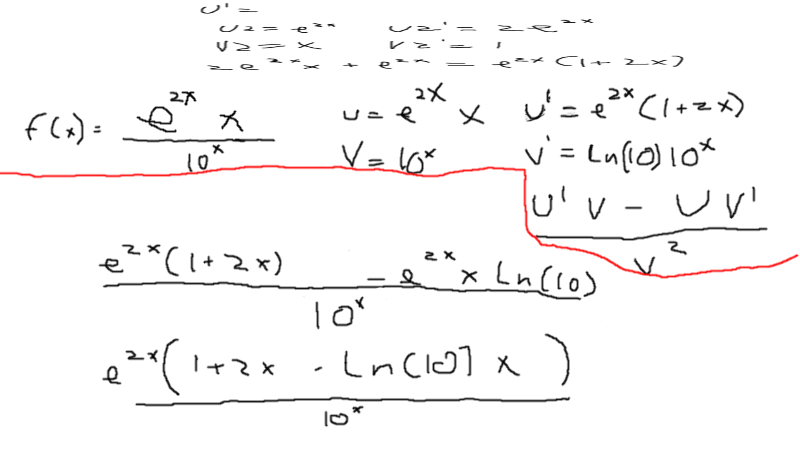 U' =
U2 = e^2x U2' = 2e^2x
V2 = x V2' = 1
2e^2x x + e^2x = e^2x (1+2x)
f(x) = e^2x x / 10^x u = e^2x x U' = e^2x (1+2x)
V = 10^x V' = Ln(10) 10^x
U' V - U V' / V^2
e^2x (1+2x) - e^2x x Ln(10) / 10^x
e^2x (1+2x - Ln(10] x) / 10^x